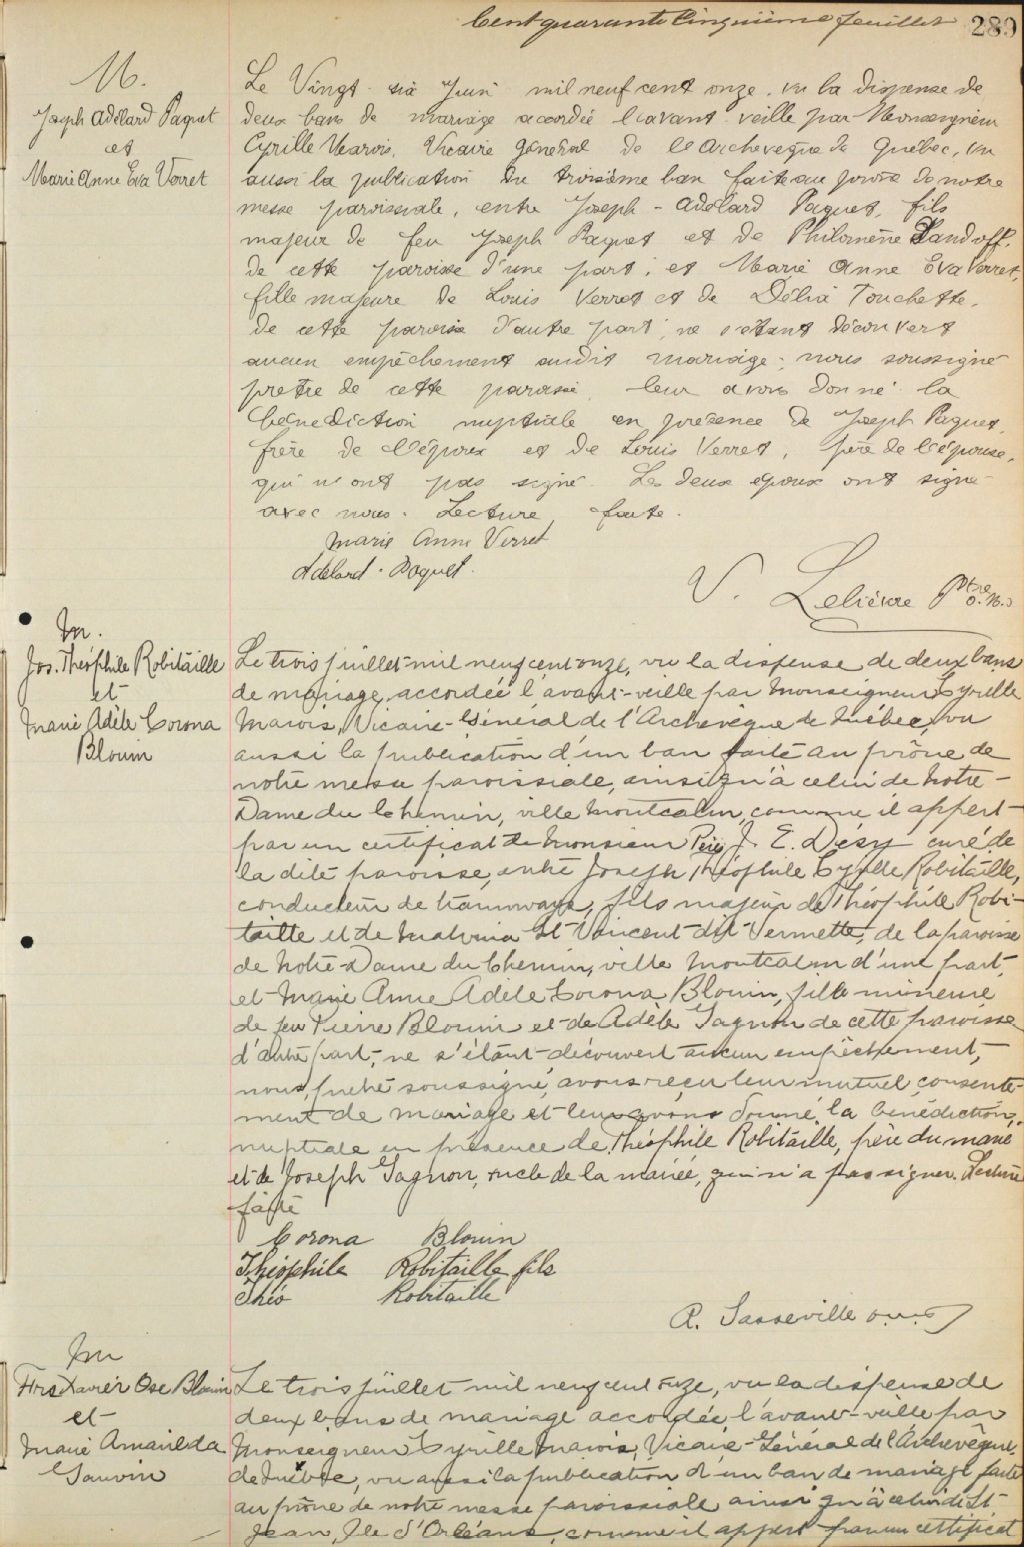 Cent quarante Cinquième feuillet 289
M.
Joseph Adélard Paquet
et
Marie Anne Eva Verret
Le Vingt-six Juin mil neuf cent onze, vu la dispense de
deux bans de mariage accordée l'avant veille par Monseigneur
Cyrille Marois, Vicaire général de l'Archevêque de Québec, vu
aussi la publication du troisième ban faite au prône de notre
messe paroissiale, entre Joseph-Adélard Paquet, fils
majeur de feu Joseph Paquet et de Philomène
de cette paroisse d'une part; et Marie Anne Eva Verret,
fille majeure de Louis Verret et de Délia Touchette,
de cette paroisse d'autre part, ne s'étant découvert
aucun empêchement audit mariage; nous soussigné
prêtre de cette paroisse, leur avons donné la
bénédiction nuptiale en présence de Joseph Paquet,
frère de l'époux et de Louis Verret, père de l'épouse,
qui n'ont pas signé. Les deux époux ont signé
avec nous. Lecture faite.
Marie Anne Verret
Adélard Paquet.
V. Lelièvre Ptre O.M.I.
M.
Jos. Théophile Robitaille
et
Marie Adèle Corona
Blouin
Le trois juillet mil neuf cent onze, vu la dispense de deux bans
de mariage accordée l'avant-veille par Monseigneur Cyrille
Marois, Vicaire-Général de l'Archevêque de Québec, vu
aussi la publication d'un ban faite au prône de
notre messe paroissiale, ainsi qu'à celui de Notre-
Dame du Chemin, ville Montcalm, comme il appert
par un certificat de Monsieur Père J. E. Désy curé de
la dite paroisse, entre Joseph Théophile Cyrille Robitaille,
conducteur de tramways, fils majeur de Théophile Robi-
taille et de Malvina St-Vincent-dit-Vermette, de la paroisse
de Notre-Dame du Chemin, ville Montcalm d'une part,
et Marie Anne Adèle Corona Blouin, fille mineure
de feu Pierre Blouin et de Adèle Gagnon de cette paroisse
d'autre part, ne s'étant découvert aucun empêchement,
nous, prêtre soussigné, avons reçu leur mutuel consente-
ment de mariage et leur avons donné la bénédiction
nuptiale en présence de Théophile Robitaille, père du marié
et de Joseph Gagnon, oncle de la mariée, qui n'a pas signer. Lecture
faite
Corona Blouin
Théophile Robitaille fils
Théo Robitaille
R. Lasseville o.m.i.
M
Frs Xavier Ose Blouin
et
Marie Amarilda
Gauvin
Le trois juillet mil neuf cent onze, vu la dispense de
deux bans de mariage accordée l'avant-veille par
Monseigneur Cyrille Marois, Vicaire-Général de l'Archevêque
de Québec, vu aussi la publication d'un ban de mariage faite
au prône de notre messe paroissiale ainsi qu'à celui de St
Jean, Ile d'Orléans, comme il appert par un certificat